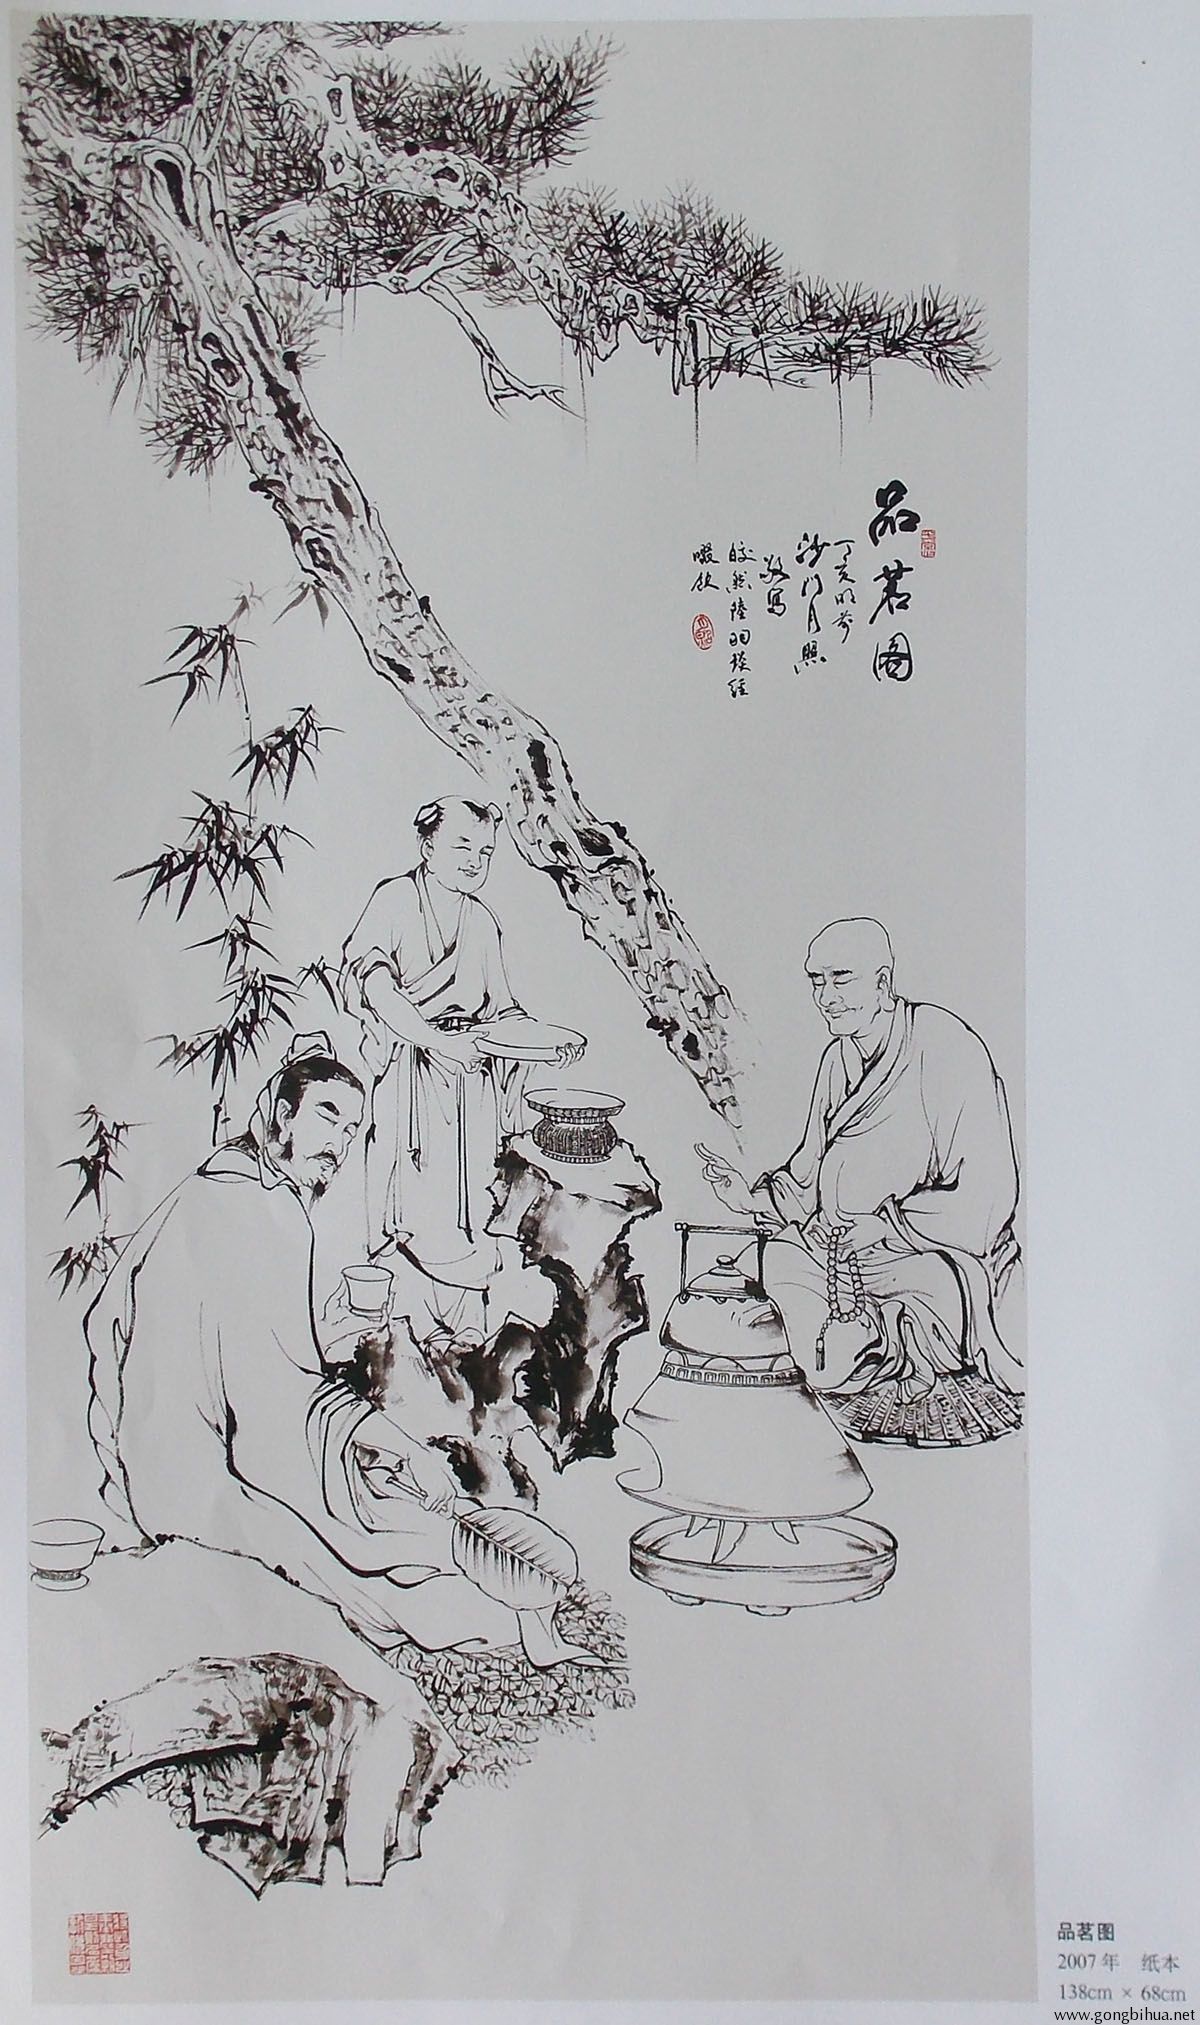 品茗图
丁亥明前
沙门月照
敬写
皎然陆羽谈经
啜饮
品茗图
2007年 纸本
138cm × 68cm
www.gongbihua.net